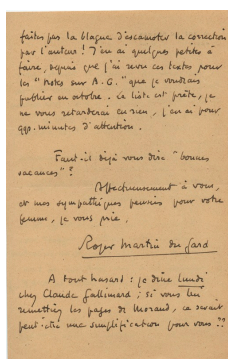 faites pas la blague d'escamoter la correction
par l'auteur ! J'en ai quelques petites à
faire, depuis que j'ai revu ces textes pour
les "Notes sur A.G." que je voudrais
publier en octobre. La liste est prête, je
ne vous retarderai en rien, j'en ai pour
qqs. minutes d'attention.
Faut-il déjà vous dire "bonnes
vacances" ?
Affectueusement à vous,
et mes sympathiques pensées pour votre
femme, je vous prie,
Roger Martin du Gard
A tout hasard : je dîne lundi
chez Claude Gallimard ; si vous lui
remettiez les pages de Morand, ce serait
peut-être une simplification pour vous ??